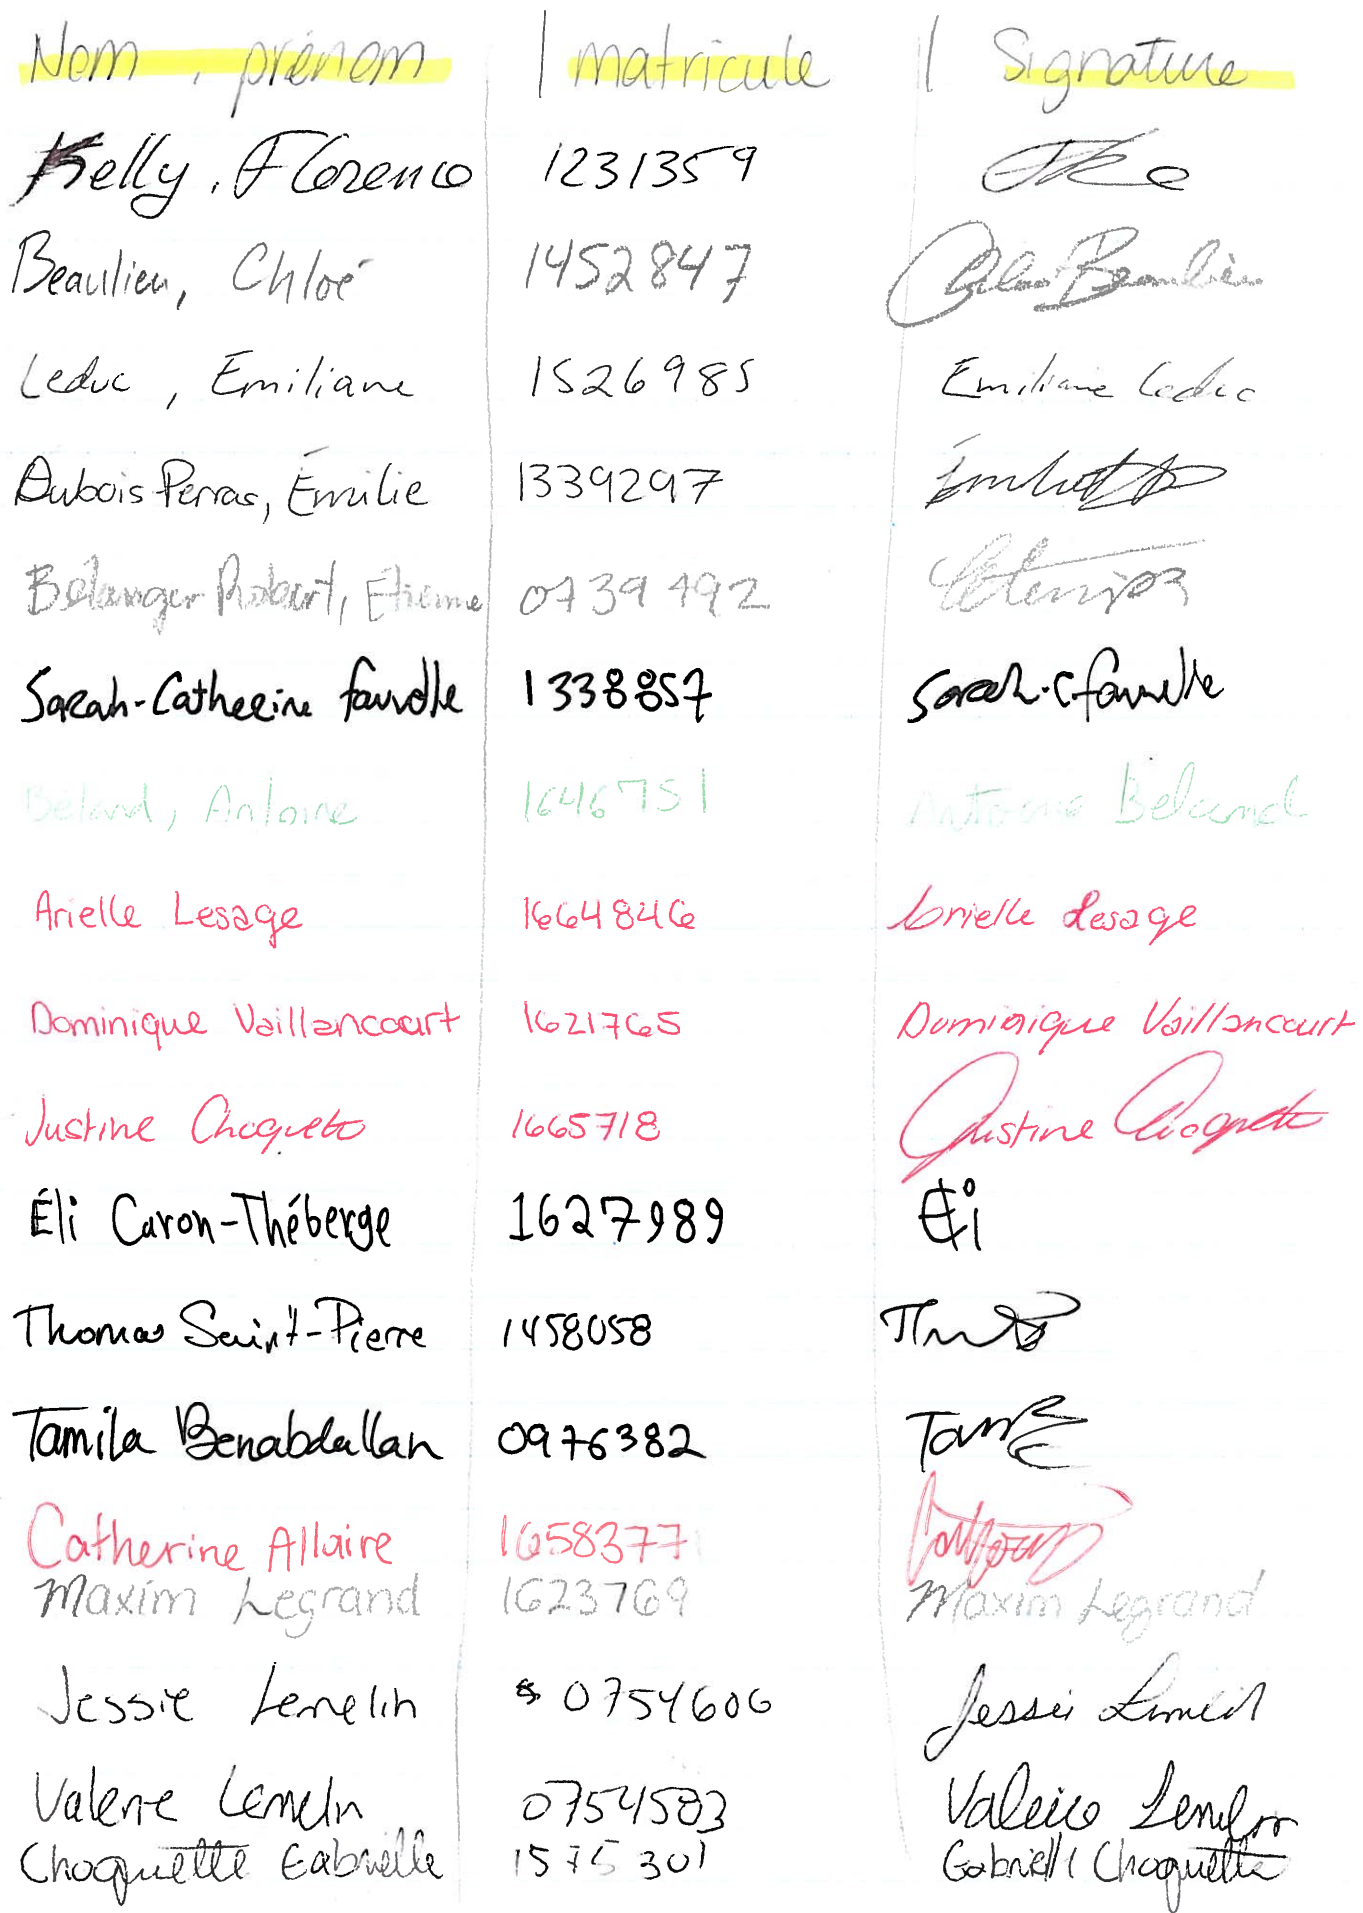 Nom, prénom | matricule | Signature
Kelly, Florence 1231359
Beaulieu, Chloé 1452847 Chloé Beaulieu
Leduc, Emiliane 1526985 Emiliane Leduc
Dubois-Perras, Émilie 1339297
Bélanger-Robert, Etienne 0739492
Sarah-Catherine 1338857 Sarah-C.
Béland, Antoine 1646751 Antoine Béland
Arielle Lesage 1664846 Arielle Lesage
Dominique Vaillancourt 1621765 Dominique Vaillancourt
Justine Choquette 1665718 Justine Choquette
Éli Caron-Théberge 1627989 Éli
Thomas Saint-Pierre 1458058
Tamila Benabdallah 0976382
Catherine Allaire 1658377
Maxim Legrand 1623769 Maxim Legrand
Jessie Lemelin 0754606 Jessie Lemelin
Valerie Lemelin 0754583 Valerie Lemelin
Choquette Gabrielle 1575301 Gabrielle Choquette